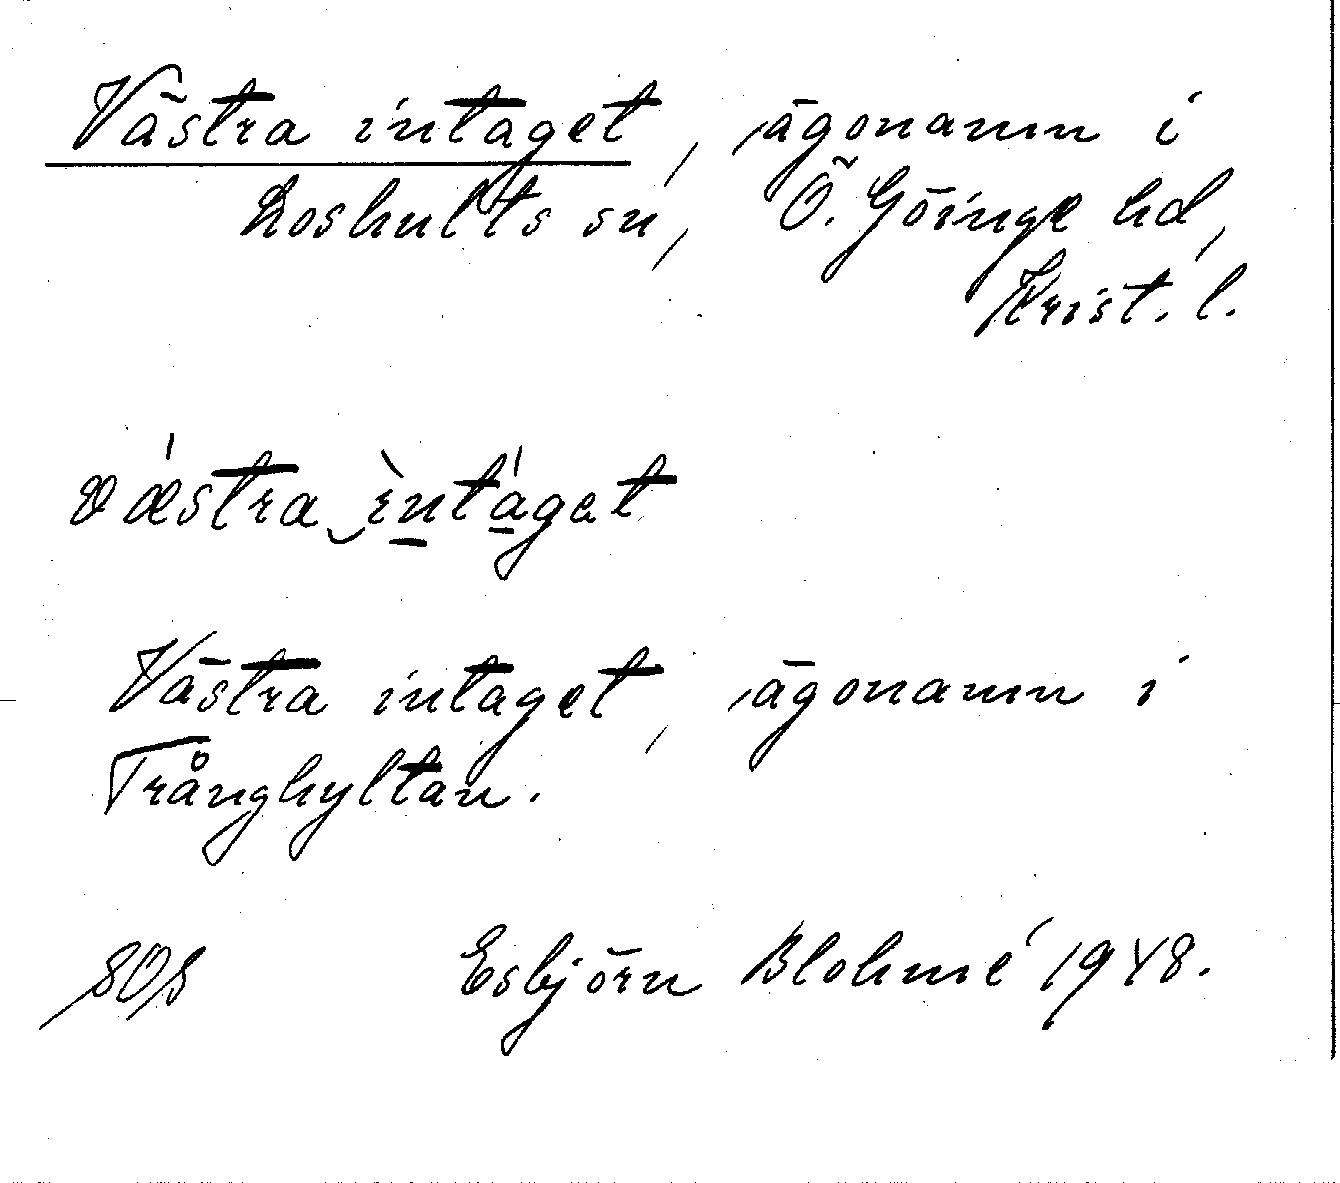 Västra intaget, ägonamn i
Loshults sn, Ö. Göinge hd,
Krist. l.
vǽstra‿ìntáget
Västra intaget, ägonamn i
Trånghyltan.
Esbjörn Blohmé 1948.